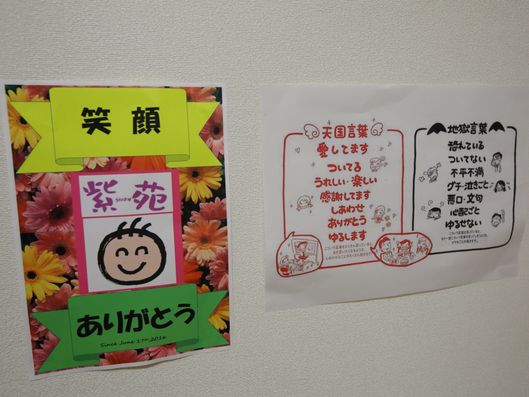 笑顔
紫苑
ありがとう
Since June 17th, 2016
天国言葉
愛してます
ついてる
うれしい・楽しい
感謝してます
しあわせ
ありがとう
ゆるします
地獄言葉
恐れている
ついてない
不平不満
グチ・泣きごと
悪口・文句
心配ごと
ゆるせない